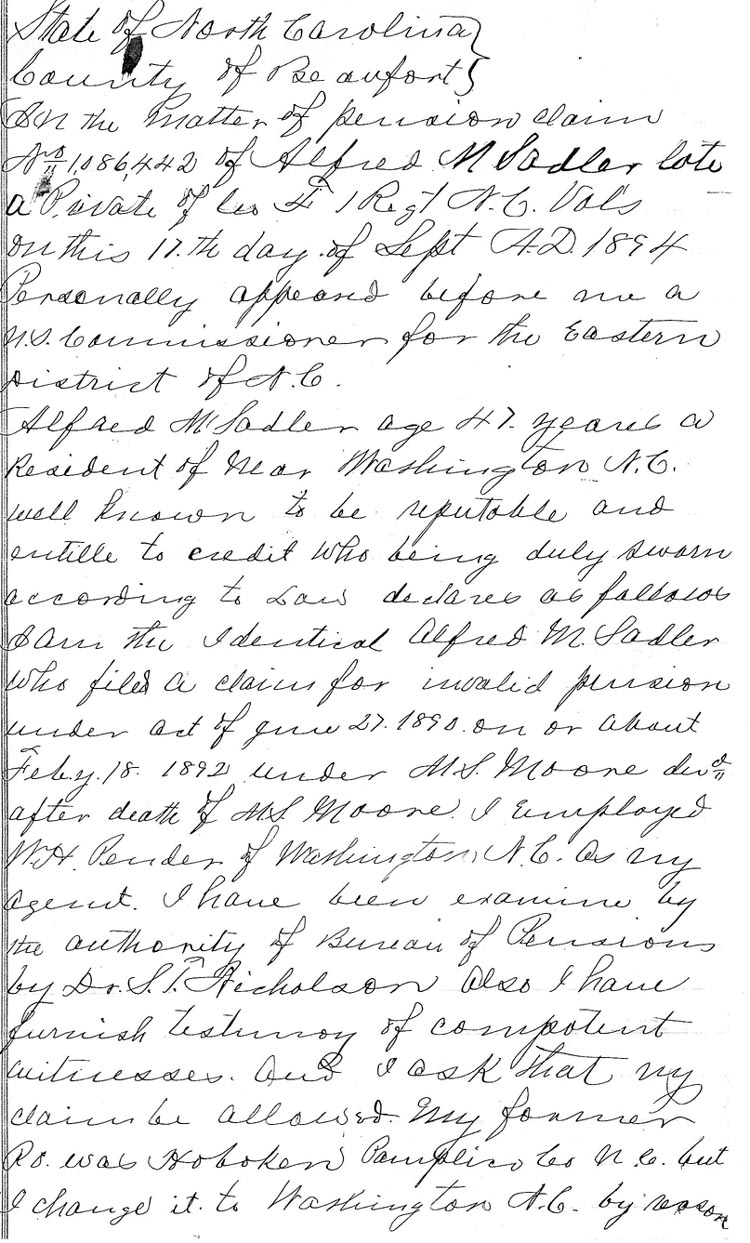 State of North Carolina}
County of Beaufort}
In the Matter of pension claim
No 1,086,442 of Alfred M Sadler late
a Private of Co F 1 Regt N.C. Vols
on this 17.th day of Sept A.D. 1894
Personally appeared before me a
U.S. Commissioner for the Eastern
District of N.C.
Alfred M Sadler age 47. years a
Resident of Near Washington N.C.
well known to be reputable and
entille to credit who being duly sworn
according to Law declares as follows
I Am the Identical Alfred M. Sadler
who filed a claim for invalid pension
under act of June 27. 1890. on or about
Feby. 18. 1892 under M.S. Moore decd
after death of M.S Moore. I Employed
W.H. Pender of Washington, N.C. as my
agent. I have been examine by
the authority of Bureau of Pensions
by Dr. S.T. Nicholson Also I have
furnish testimoy of compotent
witnesses. And I ask that my
claim be allowed. My former
P.O. was Hoboken Pamplico Co N.C. but
I change it. to Washington N.C. by reason